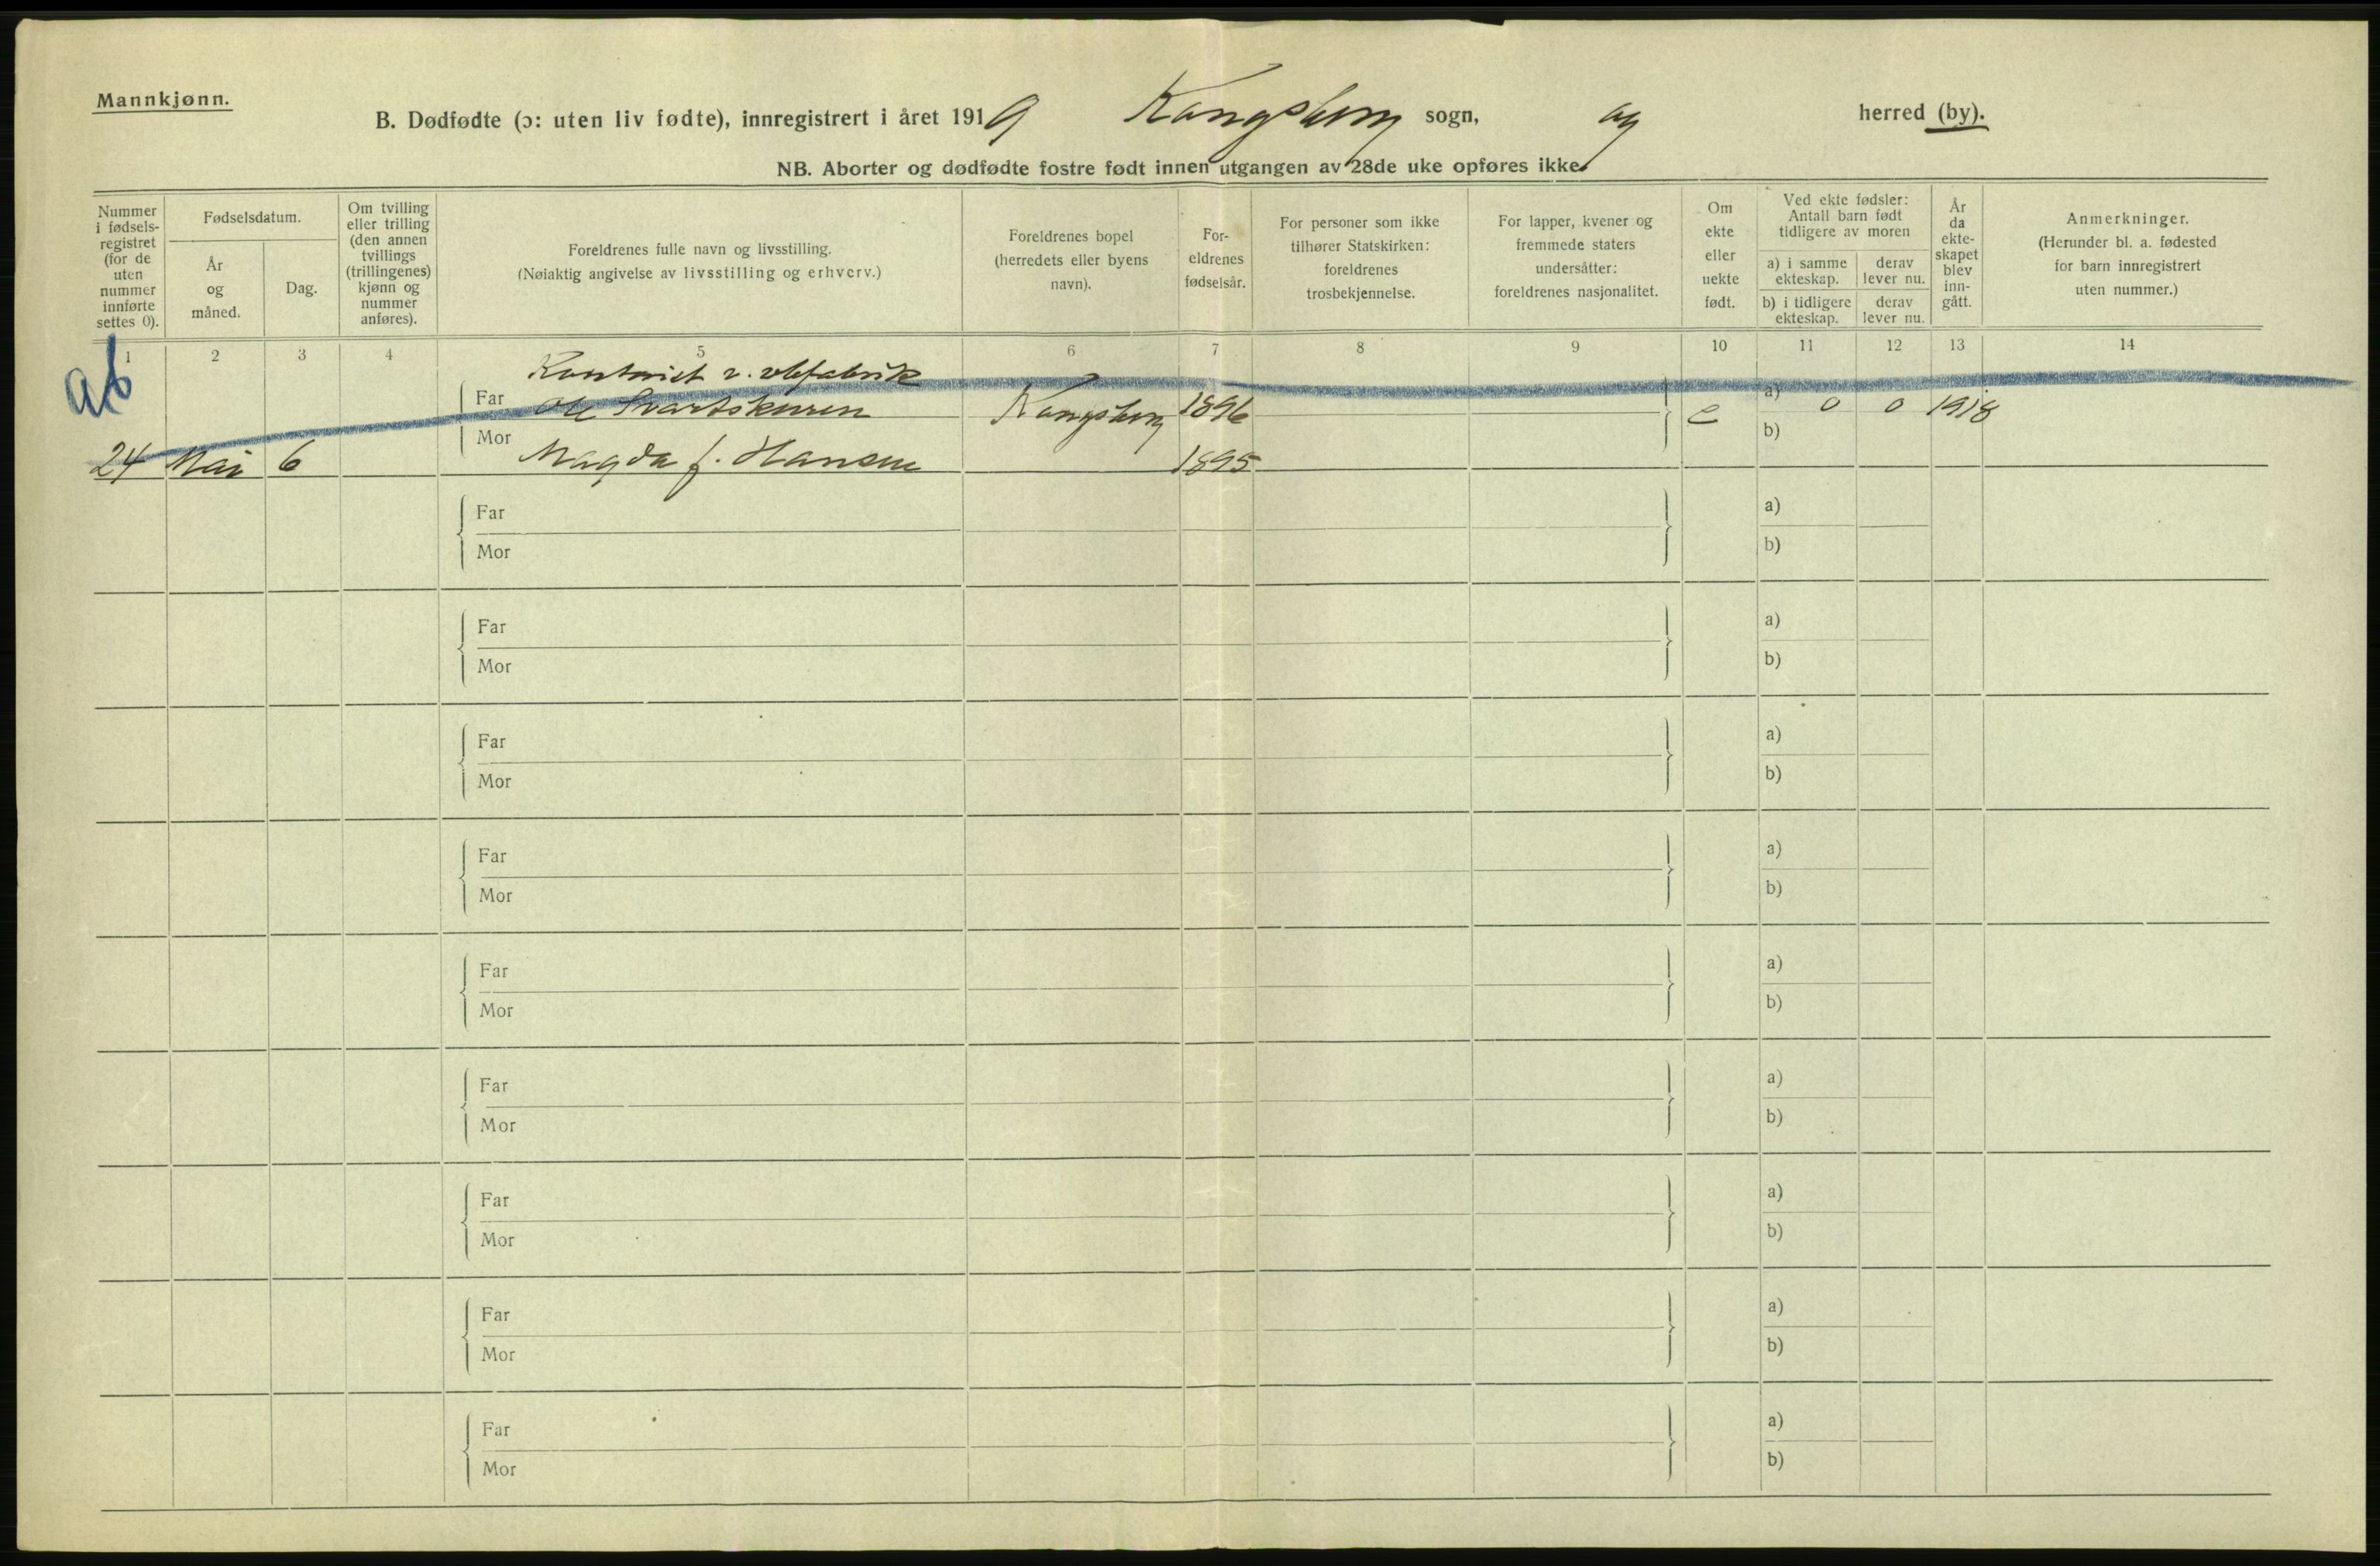 Mannkjønn.
B. Dødfødte (ɔ: uten liv fødte), innregistrert i året 1919 Kongsberg sogn, og herred (by).
NB. Aborter og dødfødte fostre født innen utgangen av 28de uke opføres ikke.
Nummer i fødsels-registret (for de uten nummer innførte settes 0).
Fødselsdatum.
År og måned.
Dag.
Om tvilling eller trilling (den annen tvillings (trillingenes) kjønn og nummer anføres).
Foreldrenes fulle navn og livsstilling.
(Nøiaktig angivelse av livsstilling og erhverv.)
Foreldrenes bopel (herredets eller byens navn).
For-eldrenes fødselsår.
For personer som ikke tilhører Statskirken: foreldrenes trosbekjennelse.
For lapper, kvener og fremmede staters undersåtter: foreldrenes nasjonalitet.
Om ekte eller uekte født.
Ved ekte fødsler: Antall barn født tidligere av moren
a) i samme ekteskap.
derav lever nu.
b) i tidligere ekteskap.
derav lever nu.
År da ekte-skapet blev inn-gått.
Anmerkninger.
(Herunder bl. a. fødested for barn innregistrert uten nummer.)
1 2 3 4 5 6 7 8 9 10 11 12 13 14
ab
Kontorist v.
Far Ole Svartskuren Kongsberg 1896 e a) 0 0 1918
24 Mai 6 Mor Magda f. Hansen 1895 b)
Far a)
Mor b)
Far a)
Mor b)
Far a)
Mor b)
Far a)
Mor b)
Far a)
Mor b)
Far a)
Mor b)
Far a)
Mor b)
Far a)
Mor b)
Far a)
Mor b)